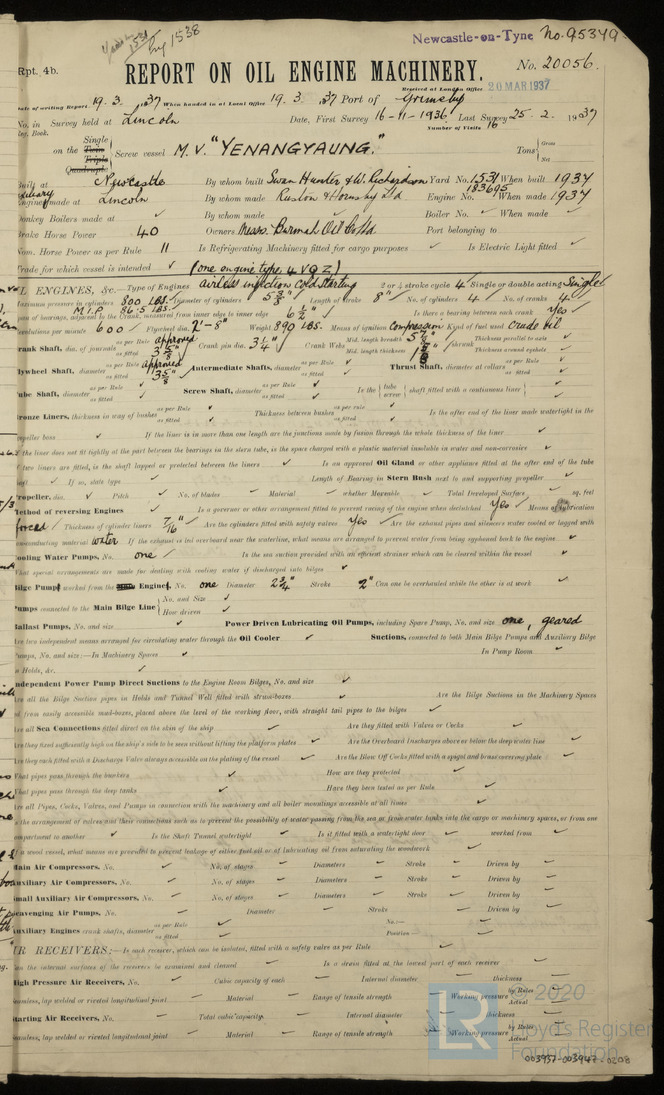 Yard No 1531 Eng 1538
Newcastle-on-Tyne No. 95379
Rpt. 4b.
No. 20056.
REPORT ON OIL ENGINE MACHINERY.
Received at London Office 20 MAR 1937
Date of writing Report 19. 3. 1937 When handed in at Local Office 19. 3. 1937 Port of Grimsby
No. in Survey held at Lincoln Date, First Survey 16-11-1936 Last Survey 25-2-1937
Reg. Book. Number of Visits 16
Single
on the Twin Triple Quadruple Screw vessel M.V. "YENANGYAUNG." Tons Gross Net
Built at Newcastle By whom built Swan Hunter & W. Richardson Yard No. 1531 When built 1937
Engines made at Lincoln By whom made Ruston & Hornsby Ltd Engine No. 183695 When made 1937
Donkey Boilers made at ✓ By whom made ✓ Boiler No. ✓ When made ✓
Brake Horse Power 40 Owners Messrs. Burmah Oil Co Ltd Port belonging to
Nom. Horse Power as per Rule 11 Is Refrigerating Machinery fitted for cargo purposes ✓ Is Electric Light fitted ✓
Trade for which vessel is intended ✓ (one engine type, 4 VQZ)
OIL ENGINES, &c. Type of Engines airless injection cold starting 2 or 4 stroke cycle 4 Single or double acting Single
Maximum pressure in cylinders 800 LBS. Diameter of cylinders 5 3/8" Length of stroke 8" No. of cylinders 4 No. of cranks 4
M.I.P. 86.5 LBS.
Span of bearings, adjacent to the Crank, measured from inner edge to inner edge 6 1/2" Is there a bearing between each crank Yes
Revolutions per minute 600 Flywheel dia. 2'-8" Weight 890 LBS. Means of ignition Compression Kind of fuel used Crude oil
Crank Shaft, dia. of journals as per Rule approved as fitted Crank pin dia. 3 1/4" Crank Webs Mid. length breadth Mid. length thickness shrunk Thickness parallel to axis Thickness around eyehole
Flywheel Shaft, diameter as per Rule approved as fitted Intermediate Shafts, diameter as per Rule as fitted Thrust Shaft, diameter at collars as per Rule as fitted
Tube Shaft, diameter as per Rule as fitted Screw Shaft, diameter as per Rule as fitted Is the tube screw shaft fitted with a continuous liner
Bronze Liners, thickness in way of bushes as per Rule as fitted Thickness between bushes as per rule as fitted Is the after end of the liner made watertight in the
propeller boss ✓ If the liner is in more than one length are the junctions made by fusion through the whole thickness of the liner ✓
If the liner does not fit tightly at the part between the bearings in the stern tube, is the space charged with a plastic material insoluble in water and non-corrosive ✓
If two liners are fitted, is the shaft lapped or protected between the liners ✓ Is an approved Oil Gland or other appliance fitted at the after end of the tube
shaft ✓ If so, state type ✓ Length of Bearing in Stern Bush next to and supporting propeller ✓
Propeller, dia. ✓ Pitch ✓ No. of blades ✓ Material ✓ whether Moveable ✓ Total Developed Surface ✓ sq. feet
Method of reversing Engines ✓ Is a governor or other arrangement fitted to prevent racing of the engine when declutched Yes ✓ Means of lubrication
forced Thickness of cylinder liners 7/16" Are the cylinders fitted with safety valves Yes Are the exhaust pipes and silencers water cooled or lagged with
non-conducting material water If the exhaust is led overboard near the waterline, what means are arranged to prevent water from being syphoned back to the engine ✓
Cooling Water Pumps, No. one Is the sea suction provided with an efficient strainer which can be cleared within the vessel ✓
What special arrangements are made for dealing with cooling water if discharged into bilges ✓
Bilge Pumps worked from the Engines, No. one Diameter 2 3/4" Stroke 2" Can one be overhauled while the other is at work ✓
Pumps connected to the Main Bilge Line No. and Size ✓ How driven ✓
Ballast Pumps, No. and size ✓ Power Driven Lubricating Oil Pumps, including Spare Pump, No. and size one, geared
Are two independent means arranged for circulating water through the Oil Cooler ✓ Suctions, connected to both Main Bilge Pumps and Auxiliary Bilge
Pumps, No. and size:—In Machinery Spaces ✓ In Pump Room ✓
In Holds, &c. ✓
Independent Power Pump Direct Suctions to the Engine Room Bilges, No. and size ✓
Are all the Bilge Suction pipes in Holds and Tunnel Well fitted with strum-boxes ✓ Are the Bilge Suctions in the Machinery Spaces
led from easily accessible mud-boxes, placed above the level of the working floor, with straight tail pipes to the bilges ✓
Are all Sea Connections fitted direct on the skin of the ship ✓ Are they fitted with Valves or Cocks ✓
Are they fixed sufficiently high on the ship's side to be seen without lifting the platform plates ✓ Are the Overboard Discharges above or below the deep water line ✓
Are they each fitted with a Discharge Valve always accessible on the plating of the vessel ✓ Are the Blow Off Cocks fitted with a spigot and brass covering plate ✓
What pipes pass through the bunkers ✓ How are they protected ✓
What pipes pass through the deep tanks ✓ Have they been tested as per Rule ✓
Are all Pipes, Cocks, Valves, and Pumps in connection with the machinery and all boiler mountings accessible at all times ✓
Is the arrangement of valves and their connections such as to prevent the possibility of water passing from the sea or from water tanks into the cargo or machinery spaces, or from one
compartment to another ✓ Is the Shaft Tunnel watertight ✓ Is it fitted with a watertight door ✓ worked from ✓
If a wood vessel, what means are provided to prevent leakage of either fuel oil or of lubricating oil from saturating the woodwork ✓
Main Air Compressors, No. No. of stages Diameters Stroke Driven by
Auxiliary Air Compressors, No. No. of stages Diameters Stroke Driven by
Small Auxiliary Air Compressors, No. No. of stages Diameters Stroke Driven by
Scavenging Air Pumps, No. Diameter Stroke Driven by
Auxiliary Engines crank shafts, diameter as per Rule as fitted No.:— Position
AIR RECEIVERS:—Is each receiver, which can be isolated, fitted with a safety valve as per Rule
Can the internal surfaces of the receivers be examined and cleaned Is a drain fitted at the lowest part of each receiver
High Pressure Air Receivers, No. Cubic capacity of each Internal diameter thickness
Seamless, lap welded or riveted longitudinal joint Material Range of tensile strength Working pressure by Rules Actual
Starting Air Receivers, No. Total cubic capacity Internal diameter thickness
Seamless, lap welded or riveted longitudinal joint Material Range of tensile strength Working pressure by Rules Actual
LR © 2020
Lloyd's Register
Foundation
003937-003947-0208